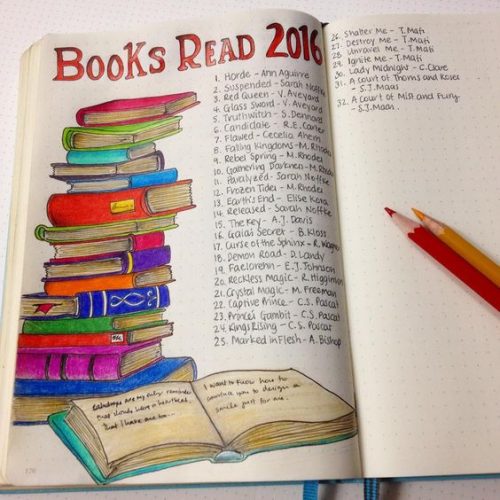 BOOKS READ 2016
1. Horde - Ann Aguirre
2. Suspended - Sarah Noffke
3. Red Queen - V. Aveyard
4. Glass Sword - V. Aveyard
5. Truthwitch - S. Dennard
6. Candidate - R.E. Carter
7. Flawed - Cecelia Ahern
8. Falling Kingdoms - M. Rhodes
9. Rebel Spring - M. Rhodes
10. Gathering Darkness - M. Rhodes
11. Paralyzed - Sarah Noffke
12. Frozen Tides - M. Rhodes
13. Earth's End - Elise Kova
14. Released - Sarah Noffke
15. The Key - A.J. Davis
16. Gaia's Secret - B. Kloss
17. Curse of the Sphinx - R.
18. Demon Road - D. Landy
19. Faelorehn - E.J. Johnson
20. Reckless Magic - R. Higginson
21. Crystal Magic - M. Freeman
22. Captive Prince - C.S. Pascat
23. Prince's Gambit - C.S. Pascat
24. Kings Rising - C.S. Pascat
25. Marked in Flesh - A. Bishop
I want to know how to
convince you to design a
smile just for me.
26. Shatter Me - T. Mafi
27. Destroy Me - T. Mafi
28. Unravel Me - T. Mafi
29. Ignite Me - T. Mafi
30. Lady Midnight - C. Clare
31. A Court of Thorns and Roses
- S.J. Maas
32. A Court of Mist and Fury
- S.J. Maas.